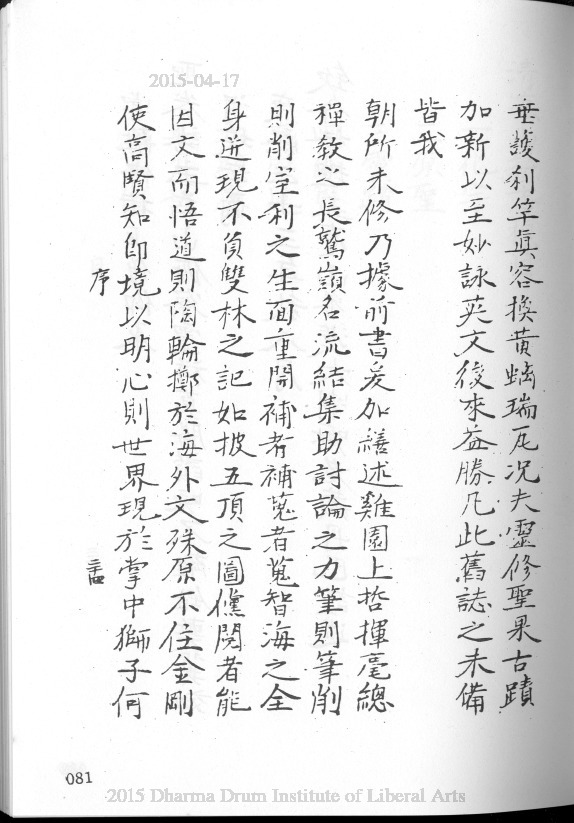 2015-04-17
垂護刹竿眞容換黄螭瑞瓦况夫靈修聖果古蹟
加新以至妙詠英文後來益勝凡此舊誌之未備
皆我
朝所未修乃據前書爰加繕述雞園上哲揮毫總
禪敎之長鷲嶺名流結集助討論之力筆則筆削
則削室利之生面重開補者補蒐者蒐智海之全
身迸現不負雙林之記如披五頂之圖儻閱者能
因文而悟道則陶輪擲於海外文殊原不住金剛
使高賢知卽境以明心則世界現於掌中獅子何
序
081
2015 Dharma Drum Institute of Liberal Arts